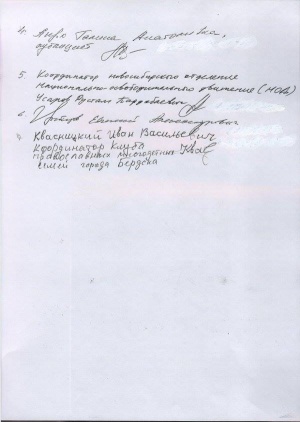 4. Галина Анатольевна,
5. Координатор новосибирского отделения
Национально-освободительного движения (НОД)
Рустам
6. Евгений Александрович
7. Квасницкий Иван Васильевич
Координатор Клуба
православных многодетных
семей города Бердска